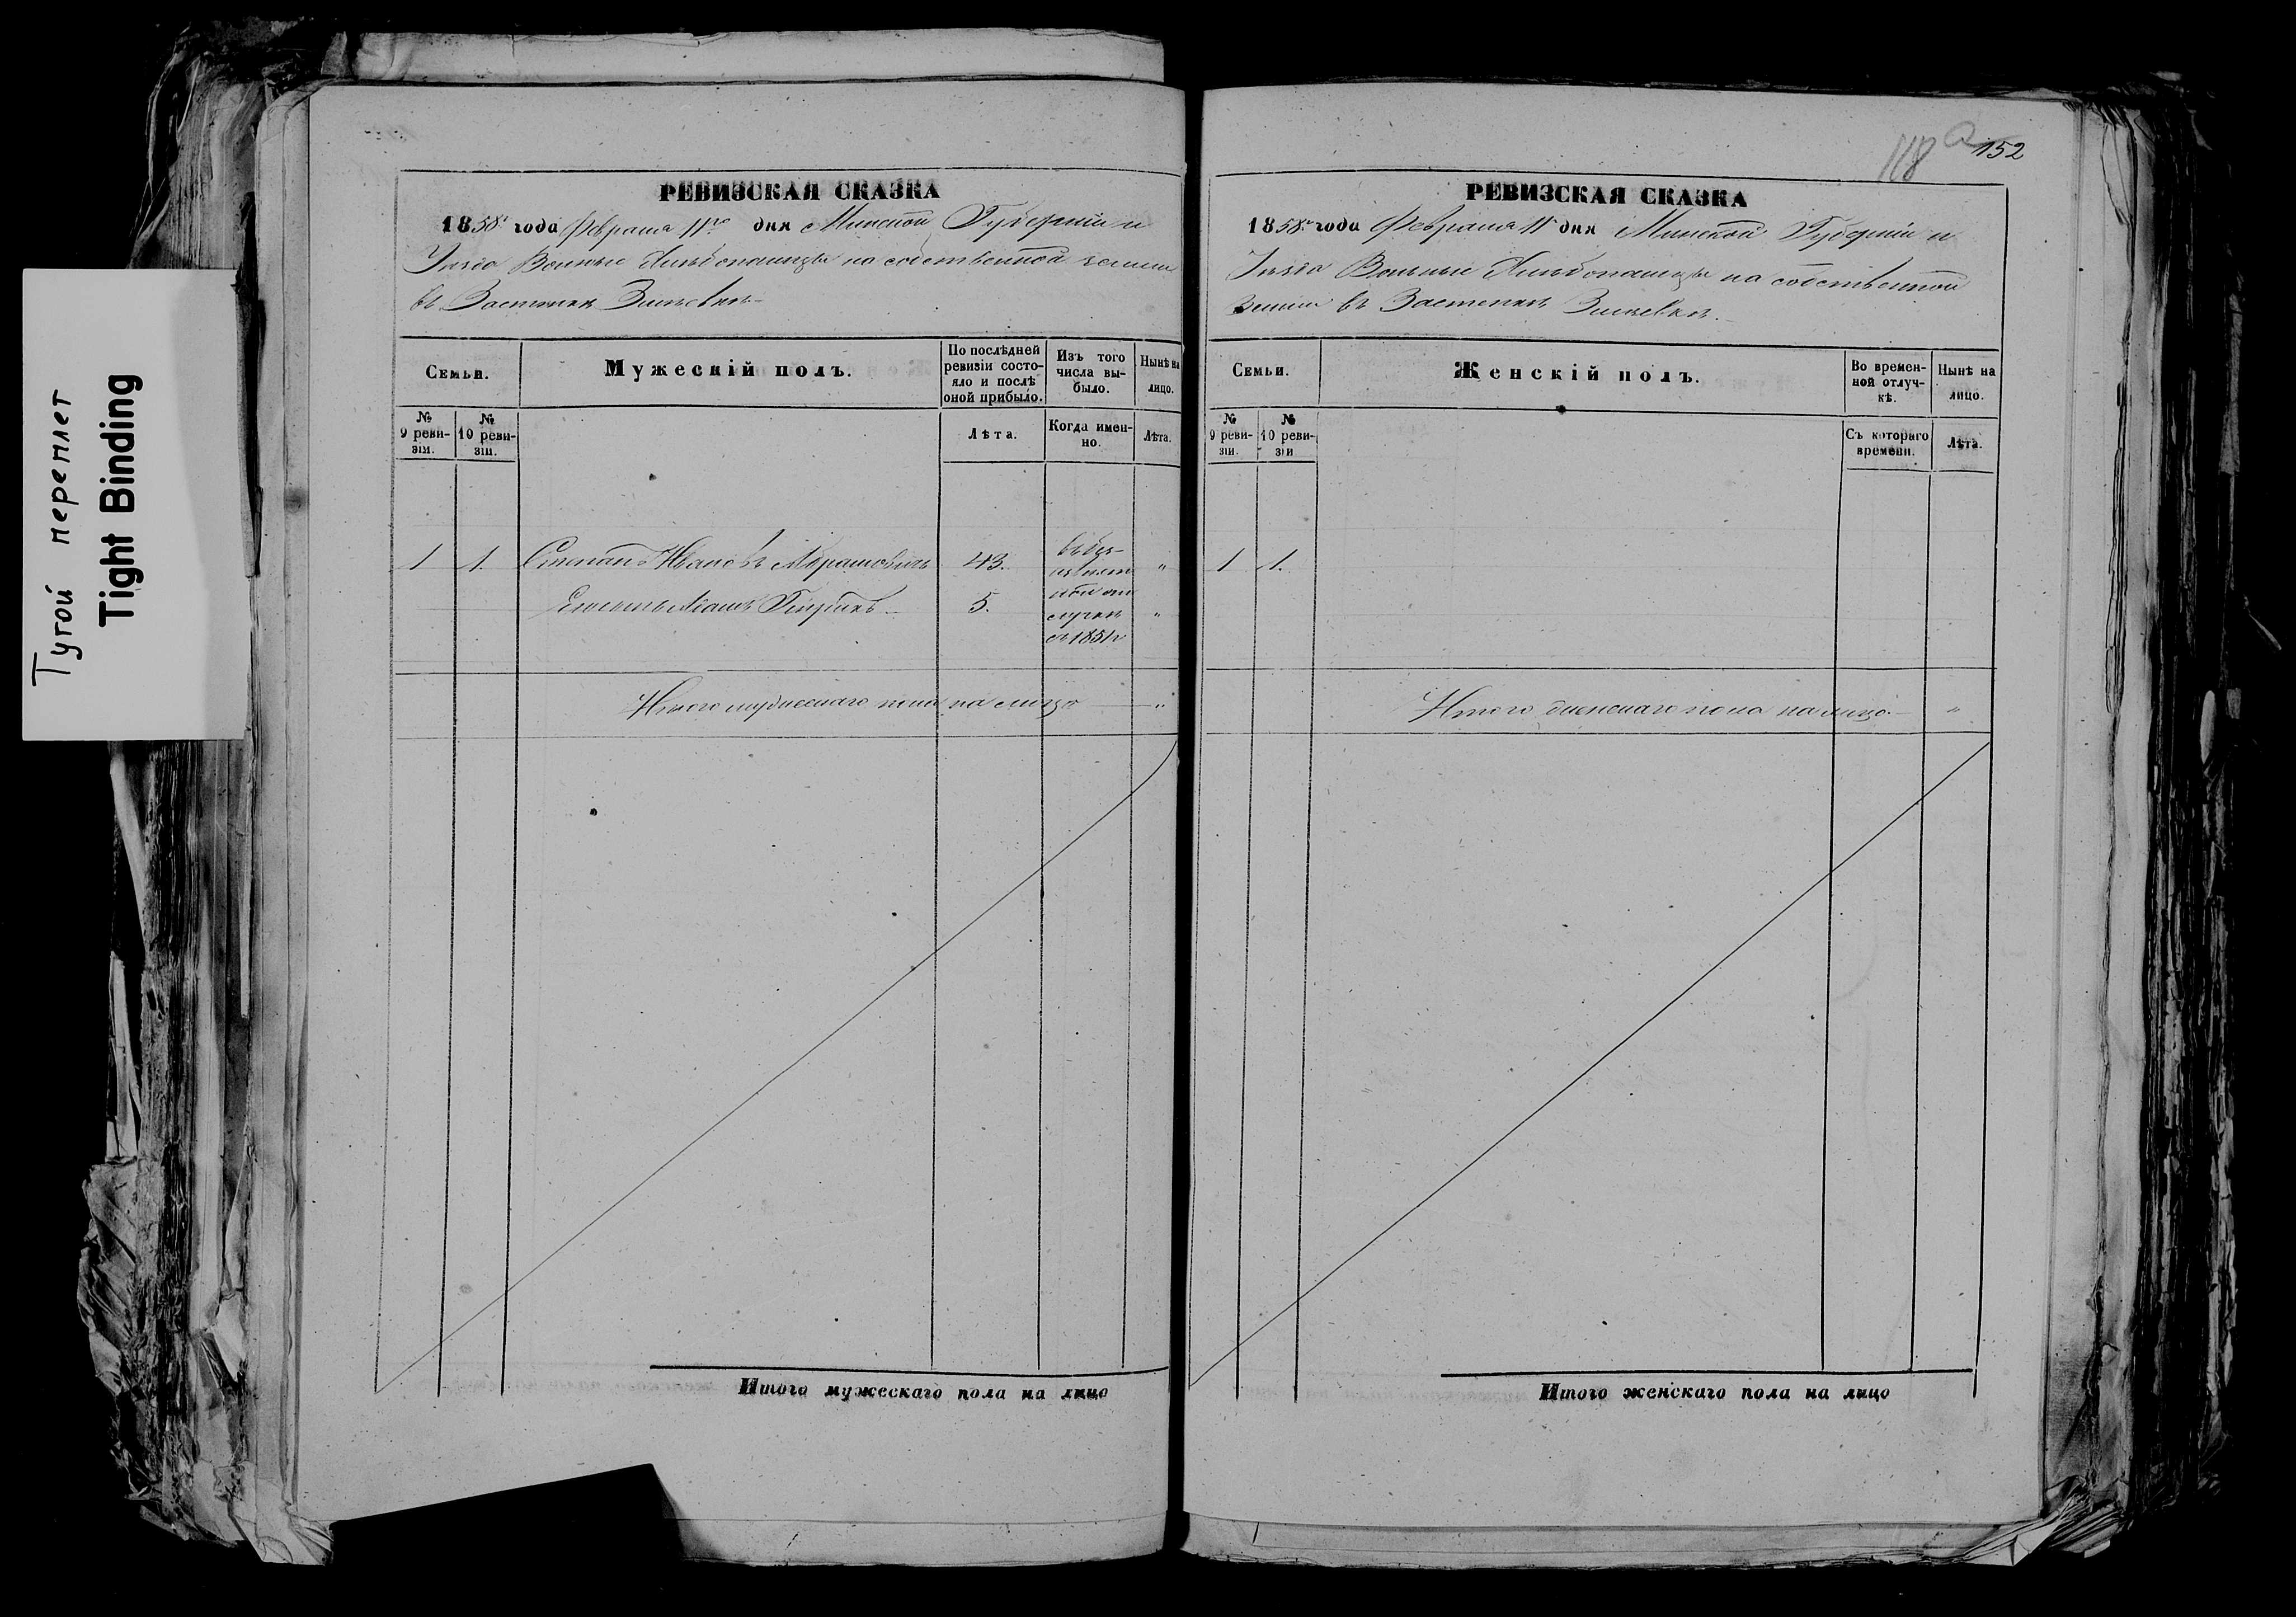 Тугой переплет
Tight Binding
РЕВИЗСКАЯ СКАЗКА
1858 года Февраля 11го дня Минской Губерніи и
Уѣзда Вольные Хлѣбопашцы на собственной земли
въ Застѣнкѣ
Семьи.
Мужескій полъ.
По послѣдней ревизіи состояло и послѣ оной прибыло.
Изъ того числа выбыло.
Нынѣ на лицо.
№ 9 ревизіи.
№ 10 ревизіи.
Лѣта.
Когда именно.
Лѣта.
1 1. Степанъ Ивановъ Абрамовичъ 43. въ без- "
извѣст
ной от
Степана сынъ 5. лучкѣ "
съ 1851г
Итого мужескаго пола на лицо — "
Итого мужескаго пола на лицо
118 а 152
РЕВИЗСКАЯ СКАЗКА
1858 года Февраля 11 дня Минской Губерніи и
Уѣзда Вольные Хлѣбопашцы на собственной
земли въ Застѣнкѣ
Семьи.
Женскій полъ.
Во временной отлучкѣ.
Нынѣ на лицо.
№ 9 ревизіи.
№ 10 ревизіи
Съ котораго времени.
Лѣта.
1 1.
Итого женскаго пола на лицо. — "
Итого женскаго пола на лицо